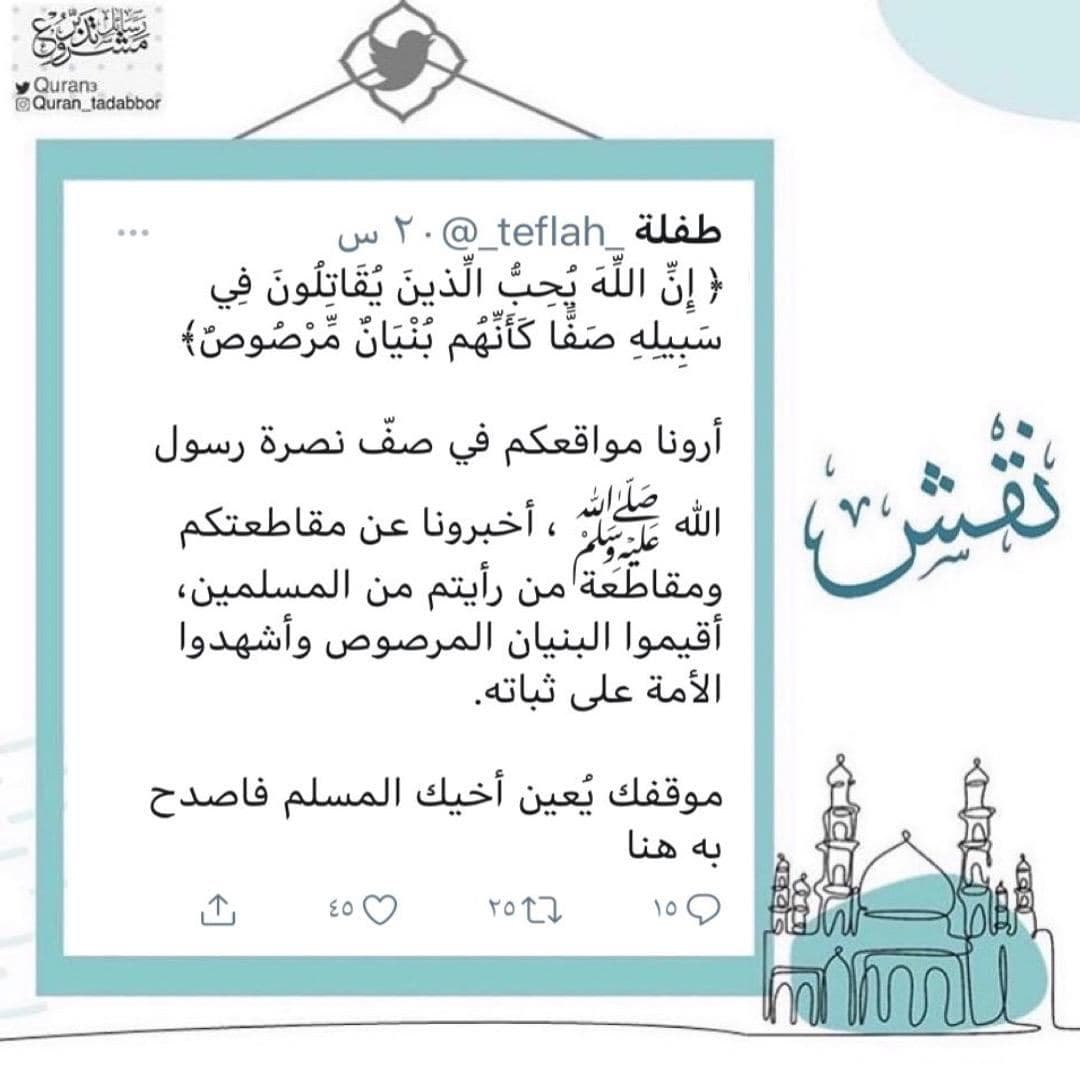 مشروع رسائل تدبر
Quran3
Quran_tadabbor
طفلة @_teflah_ · ٢٠ س
﴿ إِنَّ اللَّهَ يُحِبُّ الَّذينَ يُقَاتِلُونَ فِي
سَبِيلِهِ صَفًّا كَأَنَّهُم بُنْيَانٌ مَّرْصُوصٌ﴾
أرونا مواقعكم في صفّ نصرة رسول
الله ﷺ ، أخبرونا عن مقاطعتكم
ومقاطعة من رأيتم من المسلمين،
أقيموا البنيان المرصوص وأشهدوا
الأمة على ثباته.
موقفك يُعين أخيك المسلم فاصدح
به هنا
١٥ ٢٥ ٤٥
نقش